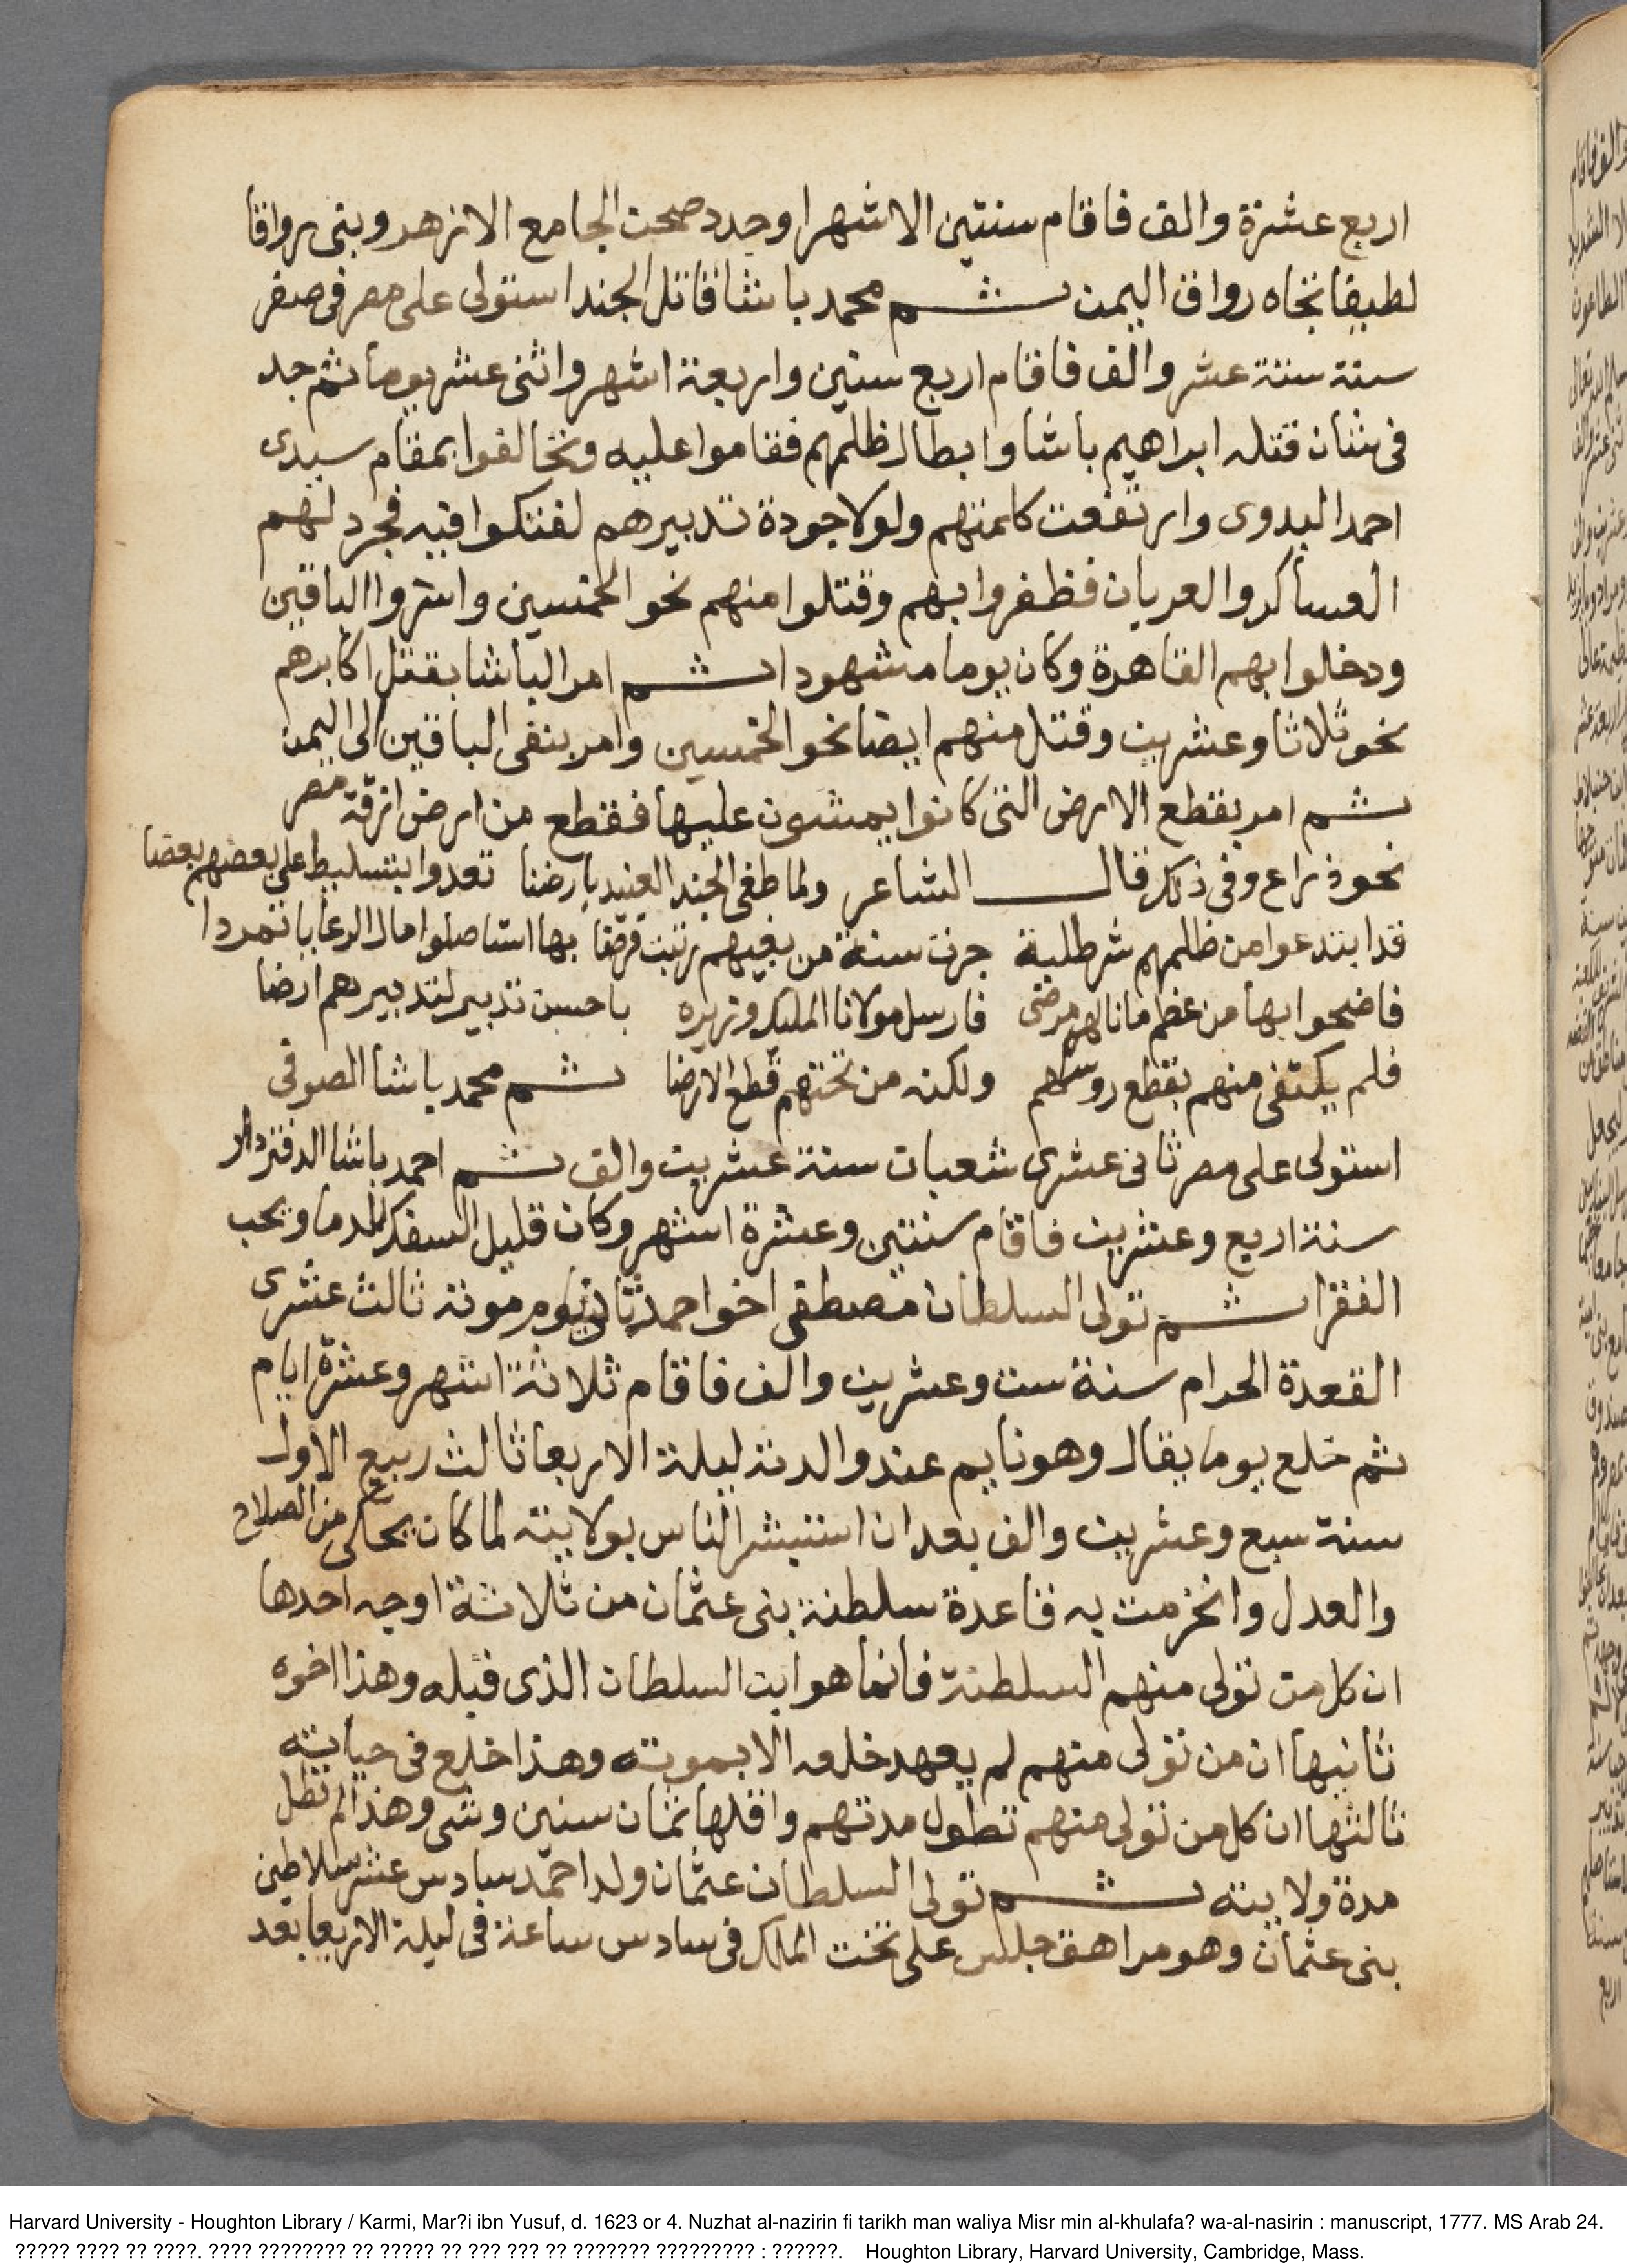 اربع عشرة والف فاقام سنتين الا شهرا وجدد صحن الجامع الازهر وبنى رواقا
لطيفا تجاه رواق اليمن ثم محمد باشا قاتل الجند استولى على مصر فى صفر
سنة ستة عشر والف فاقام اربع سنين واربعة اشهر واثنى عشر يوما ثم جد
فى شان قتله ابراهيم باشا وابطال ظلمهم فقاموا عليه وتحالفوا بمقام سيدى
احمد البدوى وارتفعت كلمتهم ولولا جودة تدبيرهم لفتكوا فيه فجرد لهم
العساكر والعربان فظفروا بهم وقتلوا منهم نحو الخمسين واسروا الباقين
ودخلوا بهم القاهرة وكان يوما مشهودا ثم امر الباشا بقتل اكابرهم
نحو ثلاثا وعشرين وقتل منهم ايضا نحو الخمسين وامر بنفى الباقين الى اليمن
ثم امر بقطع الارض التى كانوا يمشون عليها فقطع من ارض ازقة مصر
نحو ذراع وفى ذلك قال الشاعر ولما طغى الجند العنيد بارضنا تعدوا بتسليط على بعضهم بعضا
قد ابتدعوا من ظلمهم شر طلبة جرت سنة من بغيهم رتبت فرضا بها استاصلوا مال الرعايا تمردا
فاضحوا بها من عظم ما نالهم مرضى فارسل مولانا المليك وزيره باحسن تدبير لتدبيرهم ارضا
فلم يكتفى منهم بقطع روسهم ولكنه من تحتهم قطع الارضا ثم محمد باشا الصوفى
استولى على مصر ثانى عشرى شعبان سنة عشرين والف ثم احمد باشا الدفتردار
سنة اربع وعشرين فاقام سنتين وعشرة اشهر وكان قليل السفك للدما ويحب
الفقرا ثم تولى السلطان مصطفى اخو احمد ثانى يوم موته ثالث عشرى
القعدة الحرام سنة ست وعشرين والف فاقام ثلاثة اشهر وعشرة ايام
ثم خلع يوما يقال وهو نايم عند والدته ليلة الاربعا ثالث ربيع الاول
سنة سبع وعشرين والف بعد ان استبشر الناس بولايته لما كان يحكى من الصلاح
والعدل وانخرمت به قاعدة سلطنة بنى عثمان من ثلاثة اوجه احدها
ان كل من تولى منهم السلطنة فانما هو ابن السلطان الذى قبله وهذا اخوه
ثانيها ان من تولى منهم لم يعهد خلعه الا بموته وهذا خلع فى حياته
ثالثها ان كل من تولى منهم تطول مدتهم واقلها ثمان سنين وشى وهذا لم تطل
مدة ولايته ثم تولى السلطان عثمان ولد احمد سادس عشر سلاطين
بنى عثمان وهو مراهق جلس على تخت الملك فى سادس ساعة فى ليلة الاربعا بعد
Harvard University - Houghton Library / Karmi, Mar?i ibn Yusuf, d. 1623 or 4. Nuzhat al-nazirin fi tarikh man waliya Misr min al-khulafa? wa-al-nasirin : manuscript, 1777. MS Arab 24.
????? ???? ?? ????. ???? ???????? ?? ????? ?? ??? ??? ?? ??????? ????????? : ??????. Houghton Library, Harvard University, Cambridge, Mass.